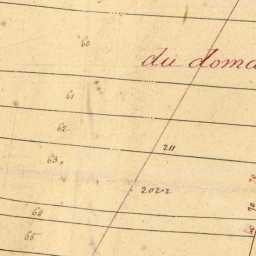 60
du doma
61
62
211
63
2022
68
70
65